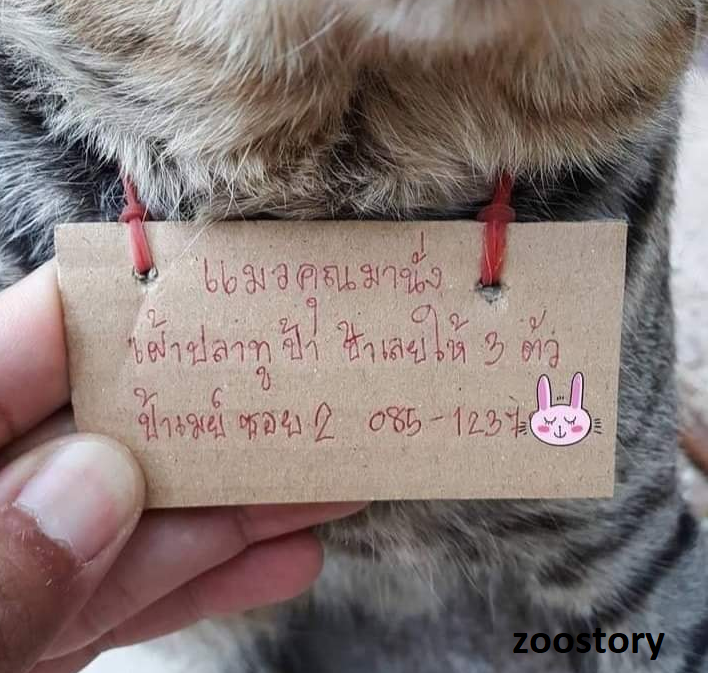 แมวคุณมานั่ง
เฝ้าปลาทูป้า ป้าเลยให้ 3 ตัว
ป้าเมย์ ซอย 2 085-1237
zoostory